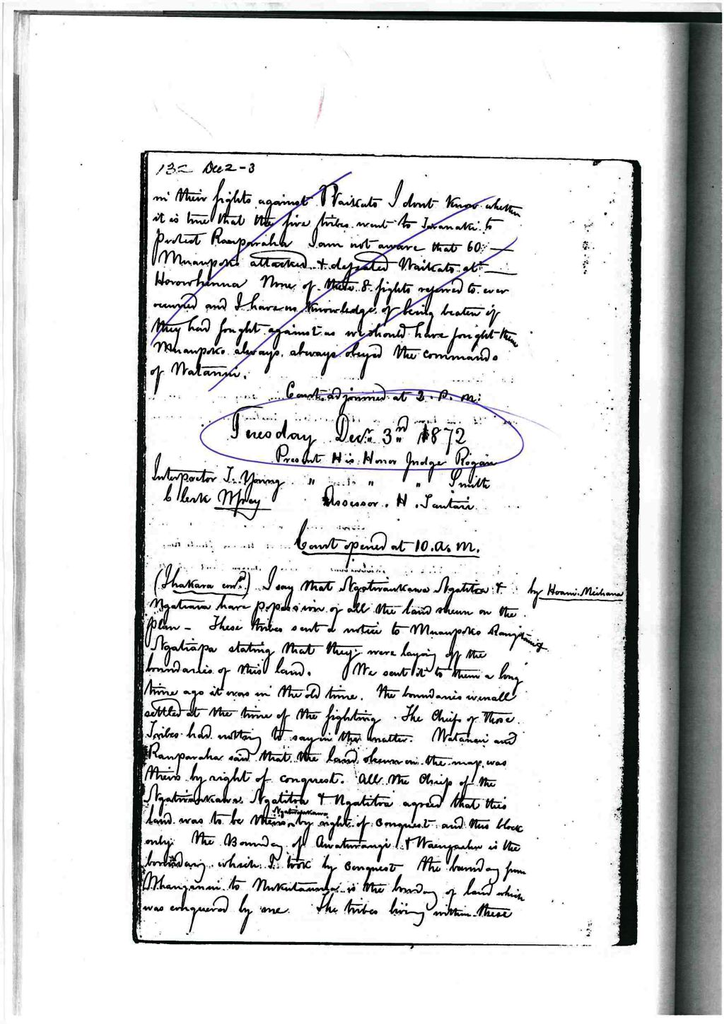 132 Dec 2-3
in their fights against Waikato I dont know whether
it is true that the five tribes went to Taranaki to
protect Rauparaha I am not aware that 60
Muaupoko attacked & defeated Waikato at
Horowhenua None of these 8 fights referred to ever
occurred and I have no knowledge of being beaten if
they had fought against us we should have fought them
Muaupoko always, always obeyed the commands
of Watanui.
Court adjourned at 2. P. M.
Tuesday Decr. 3rd 1872
Present His Honor Judge Rogan
Interpreter J. Young " " " Smith
Clerk Assessor. H. Tautari
Court opened at 10. A. M.
(Ihakara cond.) I say that Ngatiraukawa Ngatitoa & by Hoani Meihana
Ngatiawa have possession of all the land shewn on the
plan - These tribes sent a notice to Muaupoko Rangitane
Ngatiapa stating that they were laying off the
boundaries of this land. We sent it to them a long
time ago it was in the old time. The boundaries were all
settled at the time of the fighting. The Chiefs of those
Tribes had nothing to say in the matter. Watanui and
Rauparaha said that the land shewn on the map was
theirs by right of conquest. All the Chiefs of the
Ngatiraukawa Ngatitoa & Ngatitoa agreed that this
land was to be Ngatiraukawa theirs by right of conquest and this block
only. The Boundary of & is the
boundary which I took by conquest The boundary from
to is the boundary of land which
was conquered by me. The tribes living within these